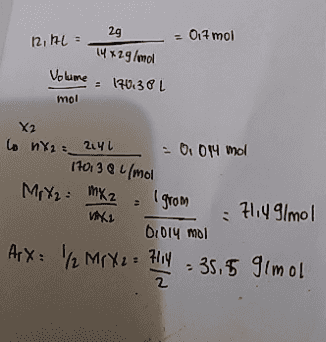 12,17L = 2g / 14 x 2g/mol = 0,7 mol
Volume / mol = 170,38 L
X2
Lo nX2 = 2,4L / 170,38 L/mol = 0,014 mol
MrX2 = mX2 / nX2 = 1 gram / 0,014 mol = 71,4 g/mol
ArX = 1/2 MrX2 = 71,4 / 2 = 35,5 g/mol